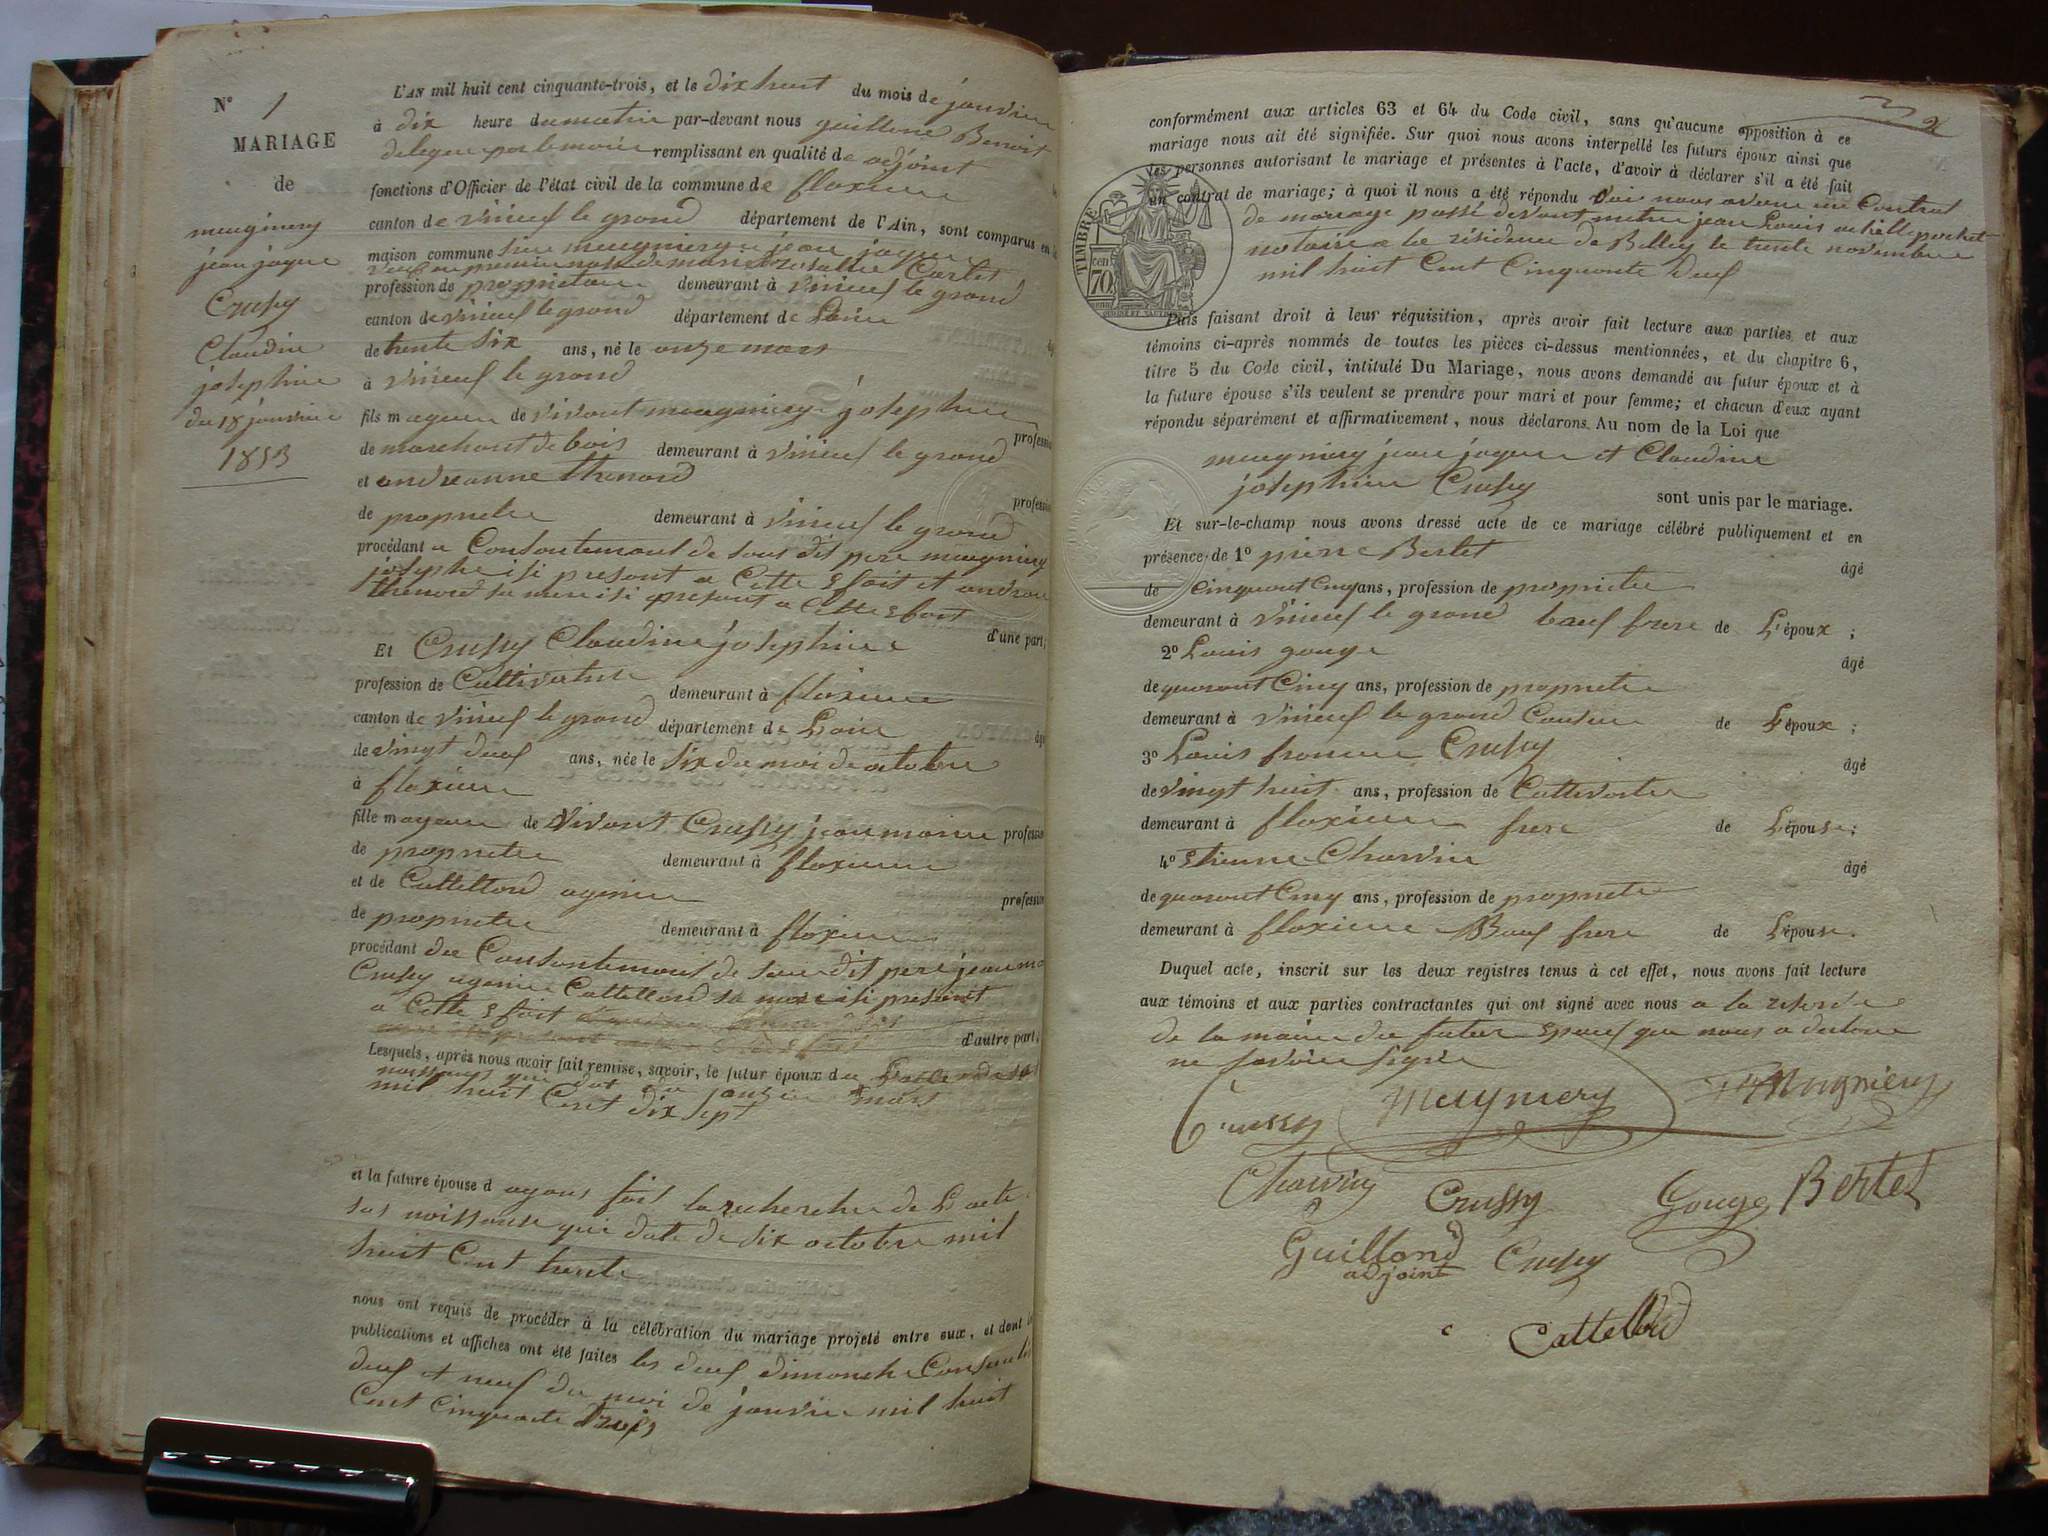 N° 1
MARIAGE
de
meugniery
jean jaque
Crussy
Claudine
josephine
du 18 janvier
1853
L'AN mil huit cent cinquante-trois, et le dix huit du mois de janvier
à dix heure du matin par-devant nous guillond Benoit
delegue par le maire remplissant en qualité de adjoint
fonctions d'Officier de l'état civil de la commune de floxieu
canton de virieux le grand département de l'Ain, sont comparus en la
maison commune meugniery jean jaque
profession de proprietaire demeurant à virieux le grand
canton de virieux le grand département de Lain
de trente six ans, né le onze mars
à virieux le grand
fils mageur de vivant meugniery josephe
profession
de marchant de bois demeurant à virieux le grand
et andreanne thenard
profession
de propriete demeurant à virieux le grand
procédant a Consontemant de sous dit pere meugniery
josephe isi present a Cette Efait et andrea
thenord sa mere isi present a Cette Efait
Et Crussy Claudine josephine d'une part;
profession de Cultivatrise demeurant à floxieu
canton de virieux le grand département de Lain
de vingt deux ans, née le six du moi de octobre
à floxieu
fille mageure de vivant Crussy jean marie profession
de propriete demeurant à floxieu
et de Cattelland agenie profession
de propriete demeurant à floxieu
procédant du Consontemant de sous dit pere jean ma
Crussy agenie Cattelland sa mere isi present
a Cette Efait
d'autre part;
Lesquels, après nous avoir fait remise, savoir, le futur époux du
naissance qui dat du onze mars
mil huit Cent dix sept
et la future épouse d ayant fait la recherche de Lacte
sas naissanse qui date de six octobre mil
huit Cent trente
nous ont requis de procéder à la célébration du mariage projeté entre eux, et dont les
publications et affiches ont été faites les deux dimanche Consecutif
deux et neuf du moi de janvier mil huit
Cent cinquante trois
conformément aux articles 63 et 64 du Code civil, sans qu'aucune opposition à ce
mariage nous ait été signifiée. Sur quoi nous avons interpellé les futurs époux ainsi que
les personnes autorisant le mariage et présentes à l'acte, d'avoir à déclarer s'il a été fait
un contrat de mariage; à quoi il nous a été répondu oui nous avons un Contrat
de mariage passé devant metre jean Louis achille pochet
notaire a la résidence de Belley le trente novembre
mil huit Cent Cinquante deux
TIMBRE
cen
70
Puis faisant droit à leur réquisition, après avoir fait lecture aux parties et aux
témoins ci-après nommés de toutes les pièces ci-dessus mentionnées, et du chapitre 6,
titre 5 du Code civil, intitulé Du Mariage, nous avons demandé au futur époux et à
la future épouse s'ils veulent se prendre pour mari et pour femme; et chacun d'eux ayant
répondu séparément et affirmativement, nous déclarons Au nom de la Loi que
meugniery jean jaque et Claudine
josephine Crussy sont unis par le mariage.
Et sur-le-champ nous avons dressé acte de ce mariage célébré publiquement et en
présence de 1° pierre Bertet âgé
de cinquant cinq ans, profession de propriete
demeurant à virieux le grand beau frere de L'époux ;
2° Louis gouge âgé
de quarant Cinq ans, profession de propriete
demeurant à virieux le grand Cousin de L'époux ;
3° Louis francois Crussy âgé
de vingt huit ans, profession de Cultivateur
demeurant à floxieu frere de L'épouse ;
4° Etienne Charvin âgé
de quarant Cinq ans, profession de propriete
demeurant à floxieu Beau frere de L'épouse.
Duquel acte, inscrit sur les deux registres tenus à cet effet, nous avons fait lecture
aux témoins et aux parties contractantes qui ont signé avec nous a la reserve
de la mere du futur Epoux que nous a declaré
ne savoir signer
Crussy Meugniery Mugniery
Charvin Crussy Gouge Bertet
Guillond Crussy
adjoint
Cattelland